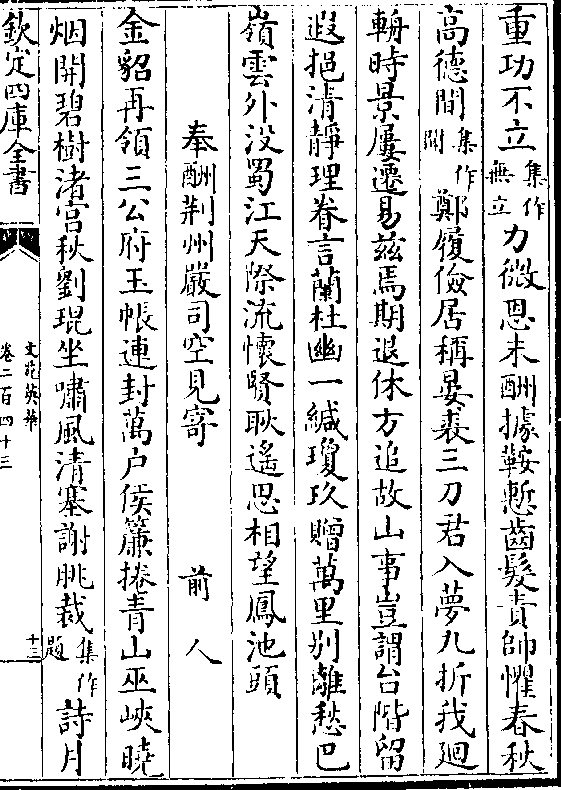 重功不立集作無立力微恩未酬據鞍慙齒髮責帥懼春秋
高德間集作閒鄭履儉居稱晏裘三刀君入夢九折我廻
輈時景屢遷易兹焉期退休方追故山事豈謂台階留
遐挹清靜理眷言蘭杜幽一緘瓊玖贈萬里别離愁巴
嶺雲外没蜀江天際流懷賢耿遥思相望鳳池頭
奉酬荆州嚴司空見寄 前人
金貂再領三公府玉帳連封萬户侯簾捲青山巫峽曉
烟開碧樹渚宫秋劉琨坐嘯風清塞謝朓裁集作題詩月
欽定四庫全書
文苑英華
卷二百四十三
十三